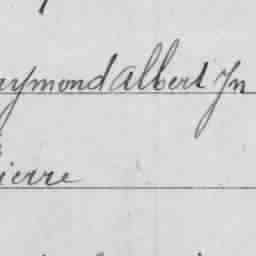 aymond Albert Jn
ierre